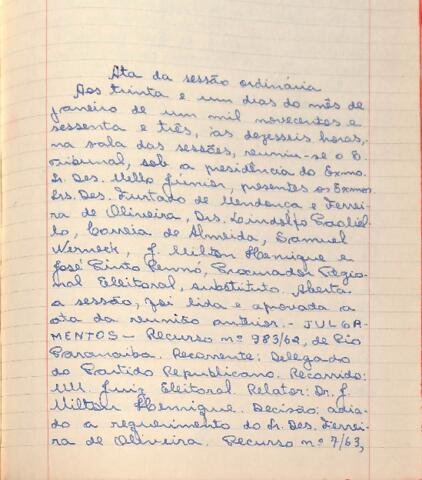 Ata da sessão ordinária
Aos trinta e um dias do mês de
janeiro de um mil novecentos e
sessenta e três, às dezesseis horas,
na sala das sessões, reuniu-se o E.
Tribunal, sob a presidência do Exmo.
Sr. Des. Mello Júnior, presentes os Exmos.
Srs. Des. Furtado de Mendonça e Ferrei-
ra de Oliveira, Drs. Lindolfo Paoliel-
lo, Correia de Almeida, Samuel
Werneck, J. Milton Henrique e
José Pinto Renó, Procurador Regio-
nal Eleitoral, substituto. Aberta
a sessão, foi lida e aprovada a
ata da reunião anterior. - JULGA-
MENTOS - Recurso nº 783/62, de Rio
Paranaíba. Recorrente: Delegado
do Partido Republicano. Recorrido:
MM. Juiz Eleitoral. Relator: Dr. J.
Milton Henrique. Decisão: adia-
do a requerimento do Sr. Des. Ferrei-
ra de Oliveira. Recurso nº 7/63,